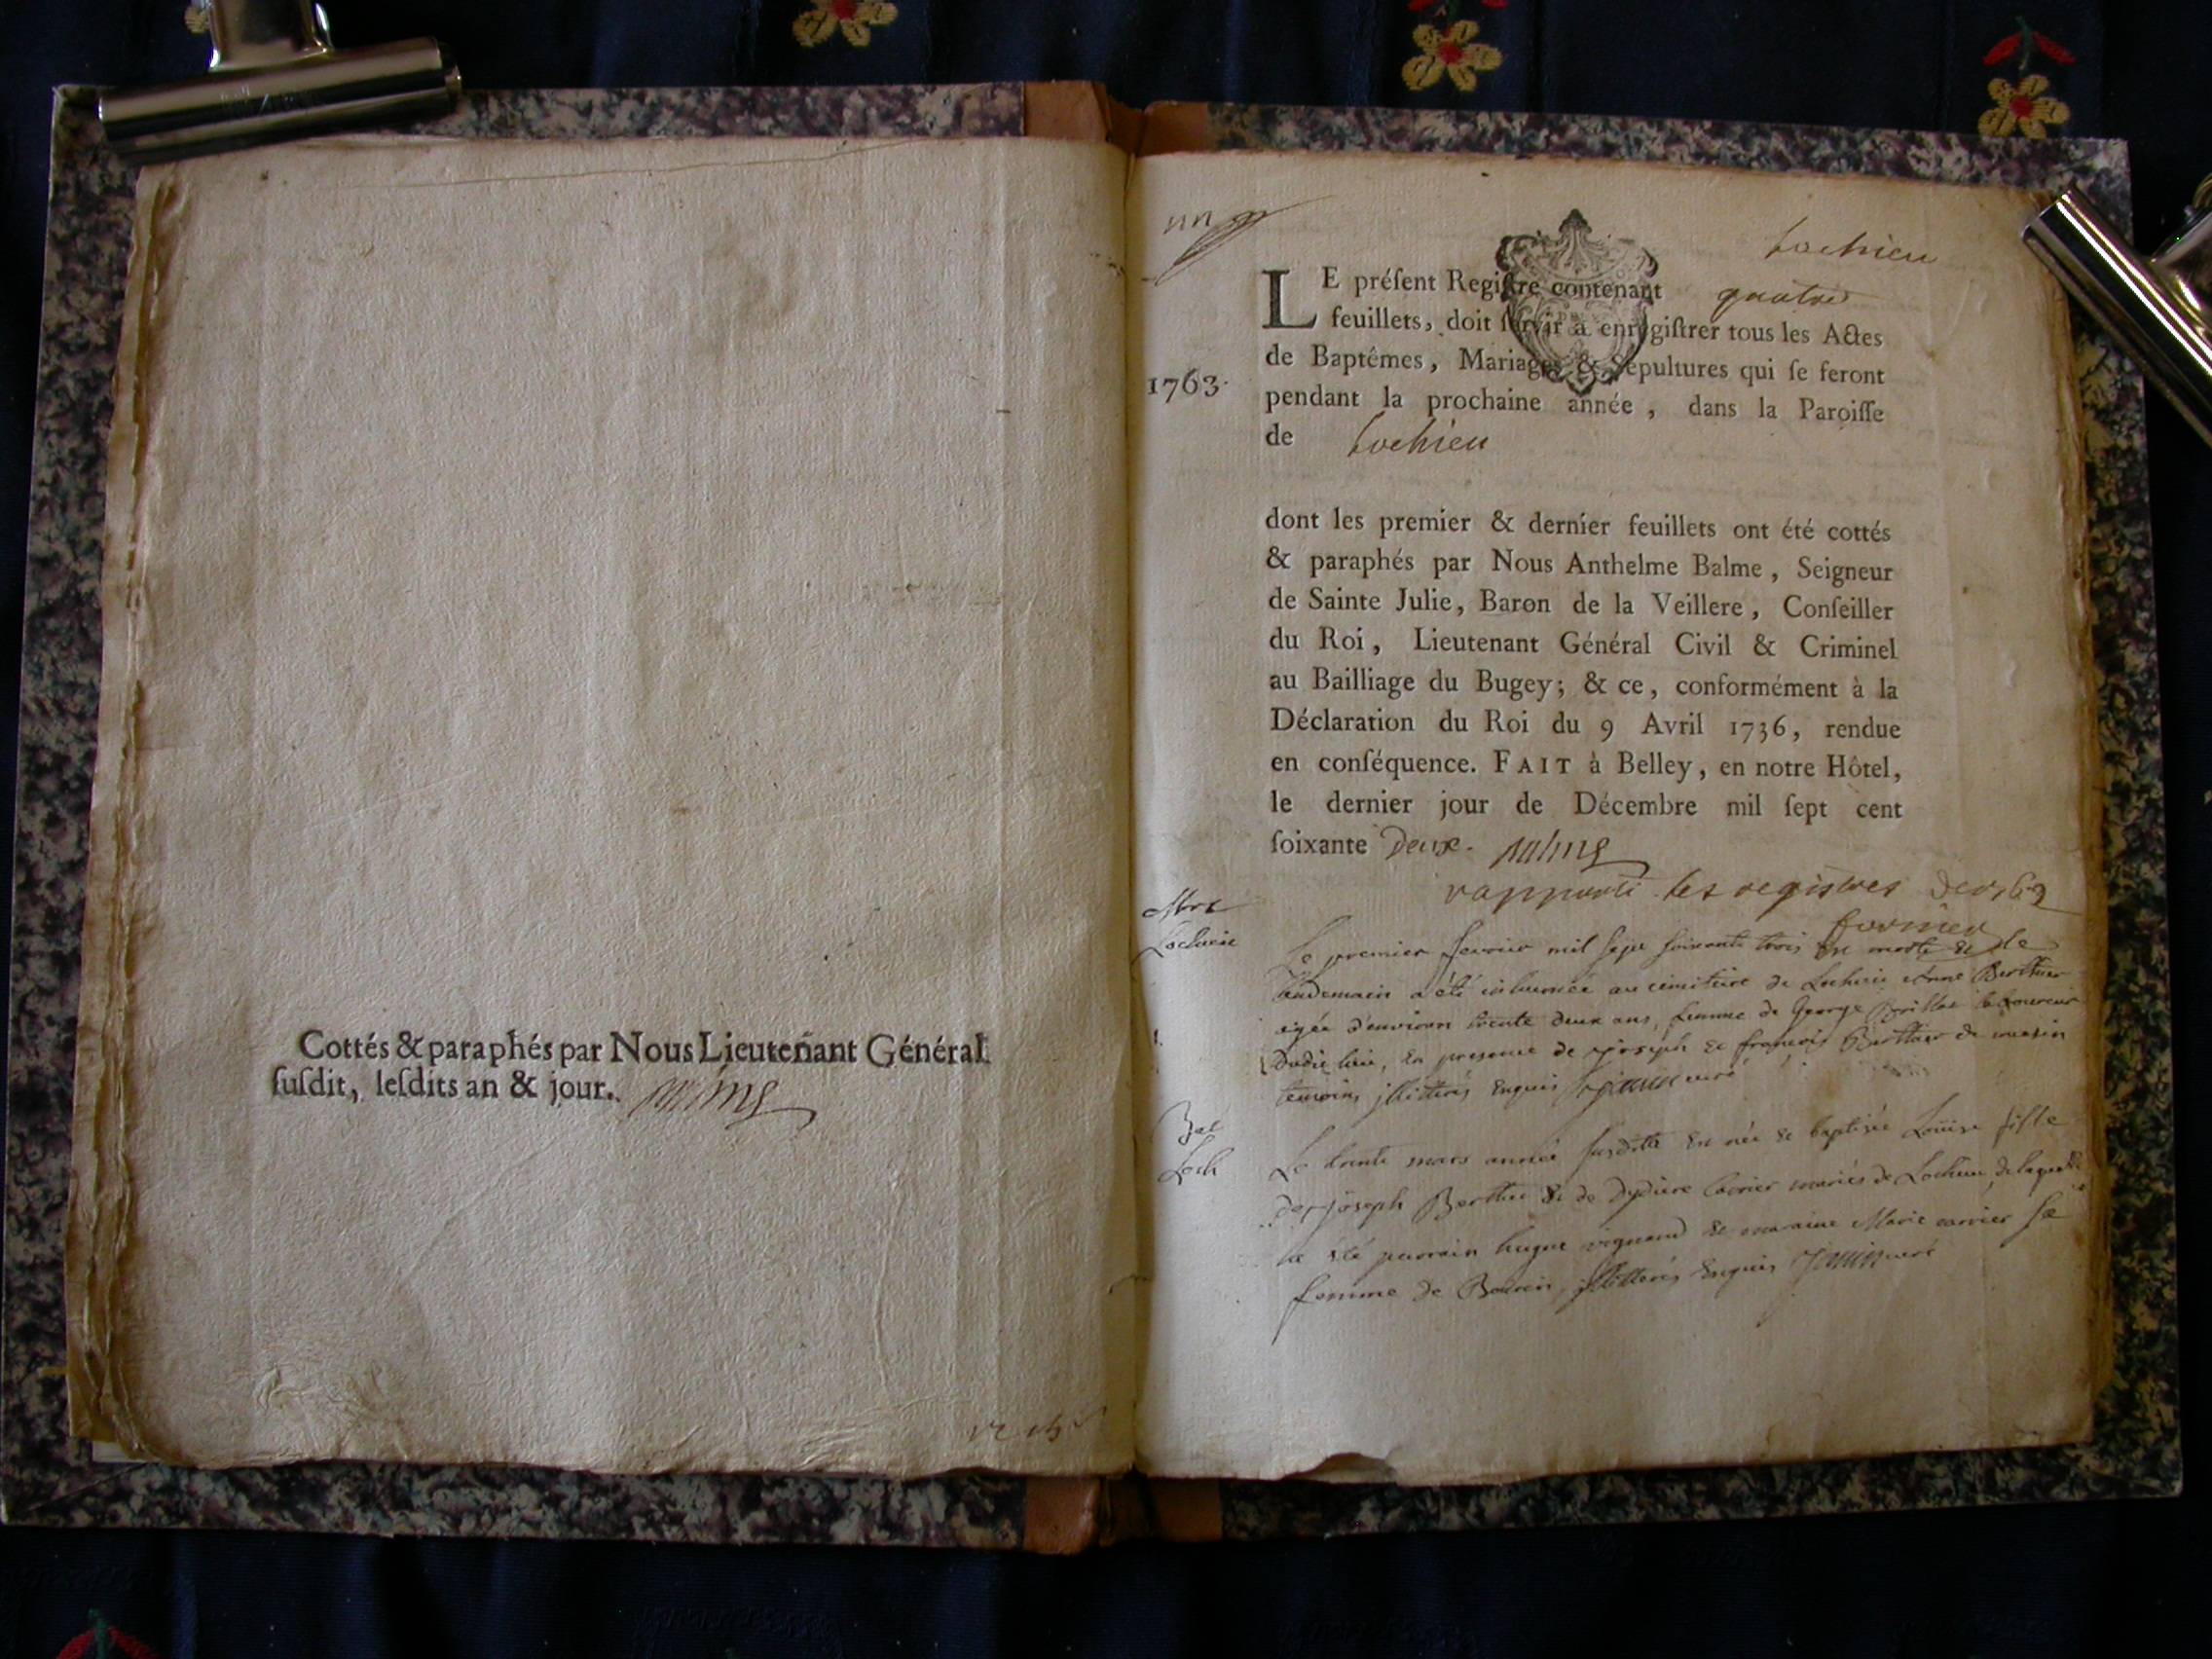 Cottés & paraphés par Nous Lieutenant Général
ſuſdit, leſdits an & jour.
un
Lochieu
LE préſent Regiſtre contenant quatre
feuillets, doit ſervir à enregiſtrer tous les Actes
de Baptêmes, Mariages & Sépultures qui ſe feront
1763.
pendant la prochaine année, dans la Paroiſſe
de Lochieu
dont les premier & dernier feuillets ont été cottés
& paraphés par Nous Anthelme Balme, Seigneur
de Sainte Julie, Baron de la Veillere, Conſeiller
du Roi, Lieutenant Général Civil & Criminel
au Bailliage du Bugey; & ce, conformément à la
Déclaration du Roi du 9 Avril 1736, rendue
en conſéquence. FAIT à Belley, en notre Hôtel,
le dernier jour de Décembre mil ſept cent
ſoixante Deux. Balme
rapporté les registres de 1762
Le premier fevrier mil sept soixante trois est morte & le
lendemain a été inhumée au cimitiere de Lochieu Anne Berthier
agée d'environ trente deux ans, femme de George Brillat laboureur
dudit lieu, en presence de joseph & françois Berthier
temoins illitterés enquis curé
Le trente mars année susditte est née & baptisée Louise fille
de joseph Berthier & de Dydiere Carrier mariés de Lochieu, de laquelle
a été parrain hugue & maraine Marie carrier
femme de illitterés enquis curé